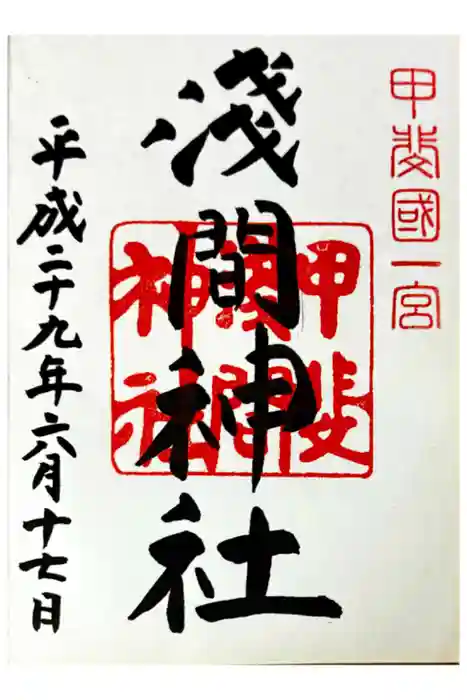 甲斐國一宮
淺間神社
甲斐
淺間
神社
平成二十九年六月十七日